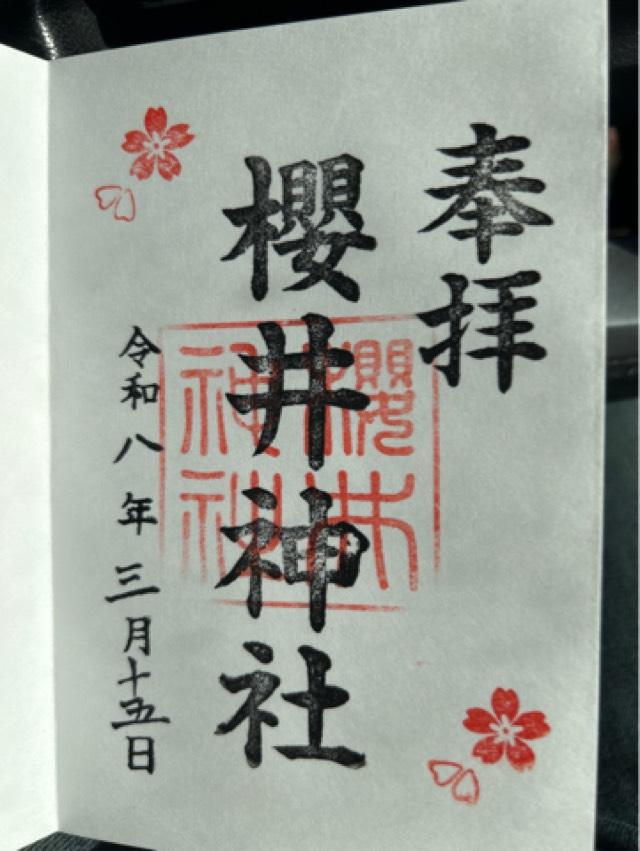 奉拝
櫻井神社
櫻井
神社
令和八年三月十五日